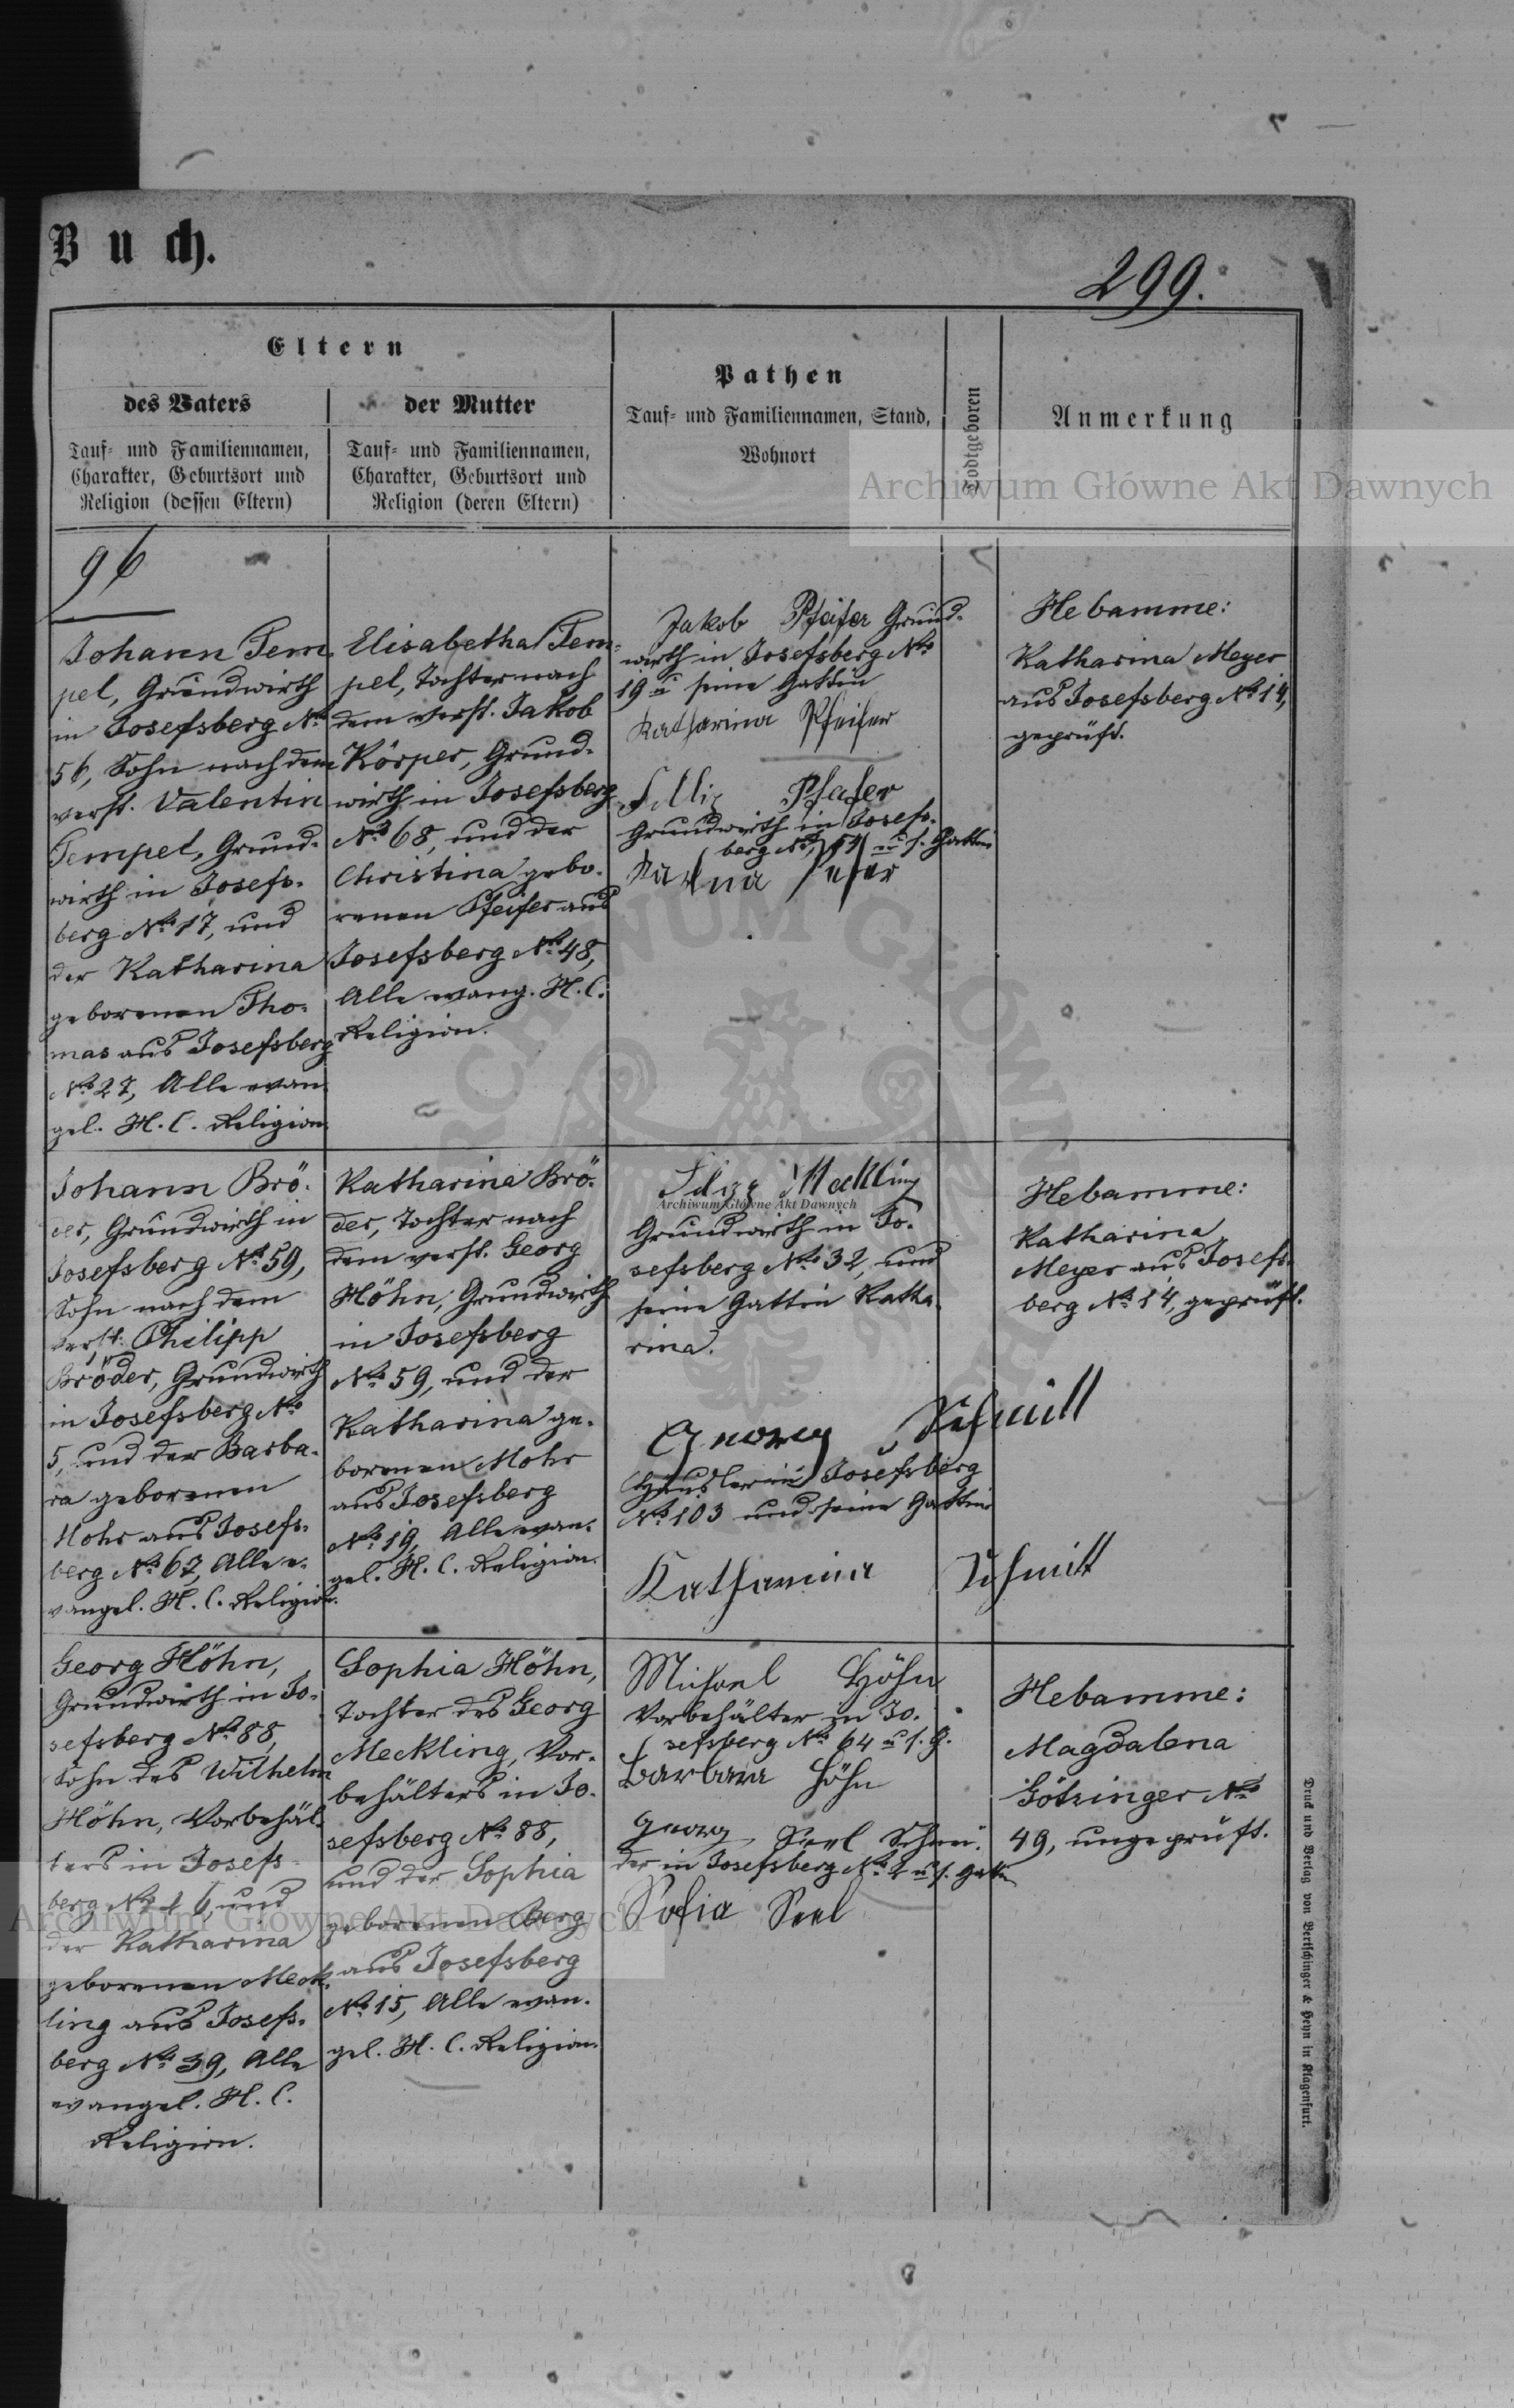 Buch.
299.
Eltern
des Vaters
Tauf- und Familiennamen,
Charakter, Geburtsort und
Religion (dessen Eltern)
der Mutter
Tauf- und Familiennamen,
Charakter, Geburtsort und
Religion (deren Eltern)
Pathen
Tauf- und Familiennamen, Stand,
Wohnort
Todtgeboren
Anmerkung
Archiwum Główne Akt Dawnych
96
Johann Tem-
pel, Grundwirth
in Josefsberg No
56, Sohn nach dem
verst. Valentin
Tempel, Grund-
wirth in Josefs-
berg No 17, und
der Katharina
geborenen Tho-
mas aus Josefsberg
No 27, Alle evan-
gel. H. C. Religion.
Elisabetha Tem-
pel, Tochter nach
dem verst. Jakob
Körper, Grund-
wirth in Josefsberg
No 68, und der
Christina gebo-
renen Pfeifer aus
Josefsberg No 48,
Alle evang. H. C.
Religion.
Jakob Pfeifer Grund-
wirth in Josefsberg No
19 u seine Gattin
Katharina Pfeifer
Grundwirth in Josefs-
berg No u s. Gattin
Hebamme:
Katharina Meyer
aus Josefsberg No 14,
geprüft.
Johann Brö-
der, Grundwirth in
Josefsberg No 59,
Sohn nach dem
verst. Philipp
Bröder, Grundwirth
in Josefsberg No
5, und der Barba-
ra geborenen
Mohr aus Josefs-
berg No 67, Alle e-
vangel. H. C. Religion.
Katharina Brö-
der, Tochter nach
dem verst. Georg
Höhn, Grundwirth
in Josefsberg
No 59, und der
Katharina ge-
borenen Mohr
aus Josefsberg
No 19, Alle evan-
gel. H. C. Religion.
Meckling
Archiwum Główne Akt Dawnych
Grundwirth in Jo-
sefsberg No 32, und
seine Gattin Katha-
rina.
Georg Schmitt
Häusler in Josefsberg
No 103 und seine Gattin
Katharina Schmitt
Hebamme:
Katharina
Meyer aus Josefs-
berg No 14, geprüft.
Georg Höhn,
Grundwirth in Jo-
sefsberg No 88,
Sohn des Wilhelm
Höhn, Vorbehäl-
ters in Josefs-
berg No 16, und
der Katharina
geborenen Meck-
ling aus Josefs-
berg No 39, Alle
evangel. H. C.
Religion.
Sophia Höhn,
Tochter des Georg
Meckling, Vor-
behälters in Jo-
sefsberg No 88,
und der Sophia
geborenen Berg
aus Josefsberg
No 15, Alle evan-
gel. H. C. Religion.
Michael Höhn
Vorbehälter in Jo-
sefsberg No 64 u s. G.
Barbara Höhn
Georg Seel Schnei-
der in Josefsberg No 2 u s. Gattin
Sofia Seel
Hebamme:
Magdalena
Götzinger No
49, ungeprüft.
Archiwum Główne Akt Dawnych
Druck und Verlag von Bertschinger & Heyn in Klagenfurt.